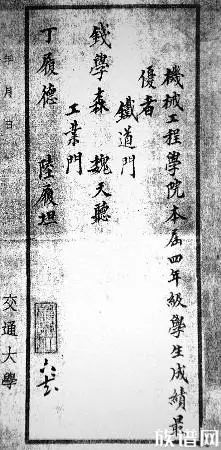 機械工程學院本届四年級學生成績最
優者
鐵道門
錢學森 魏天聽
工業門
丁履德 陸履坦
年 月 日
交通大學
族谱网